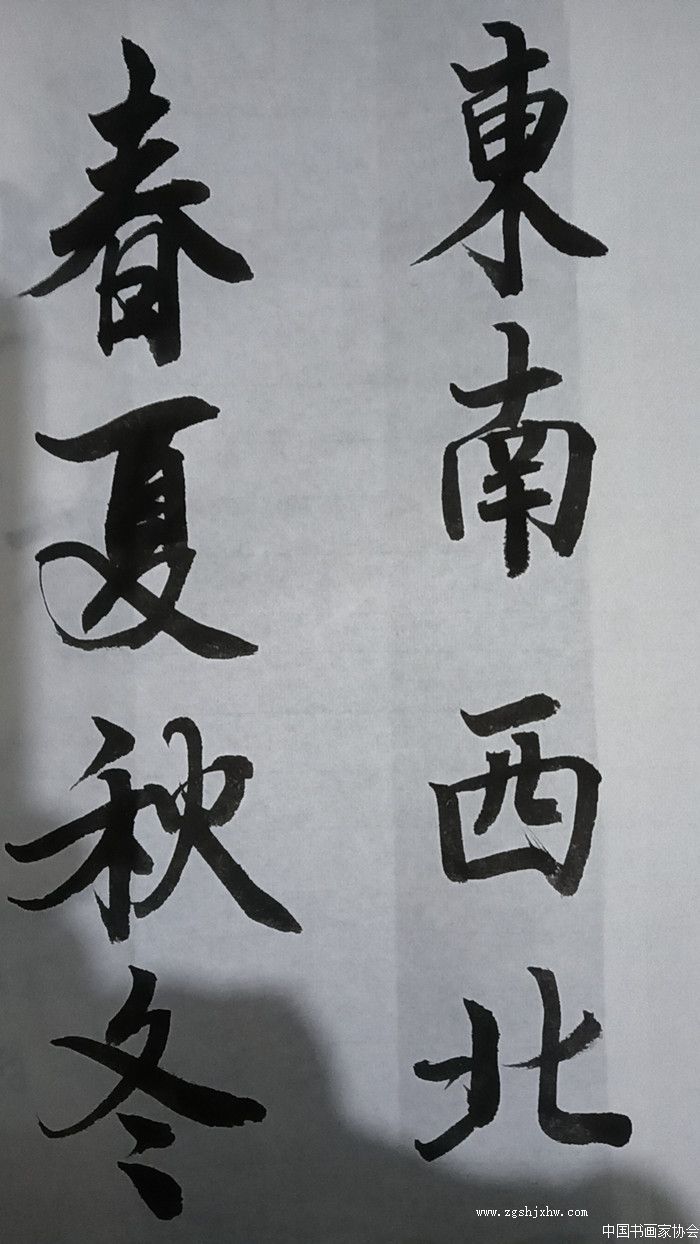 東南西北
春夏秋冬
www.zgshjxhw.com
中国书画家协会